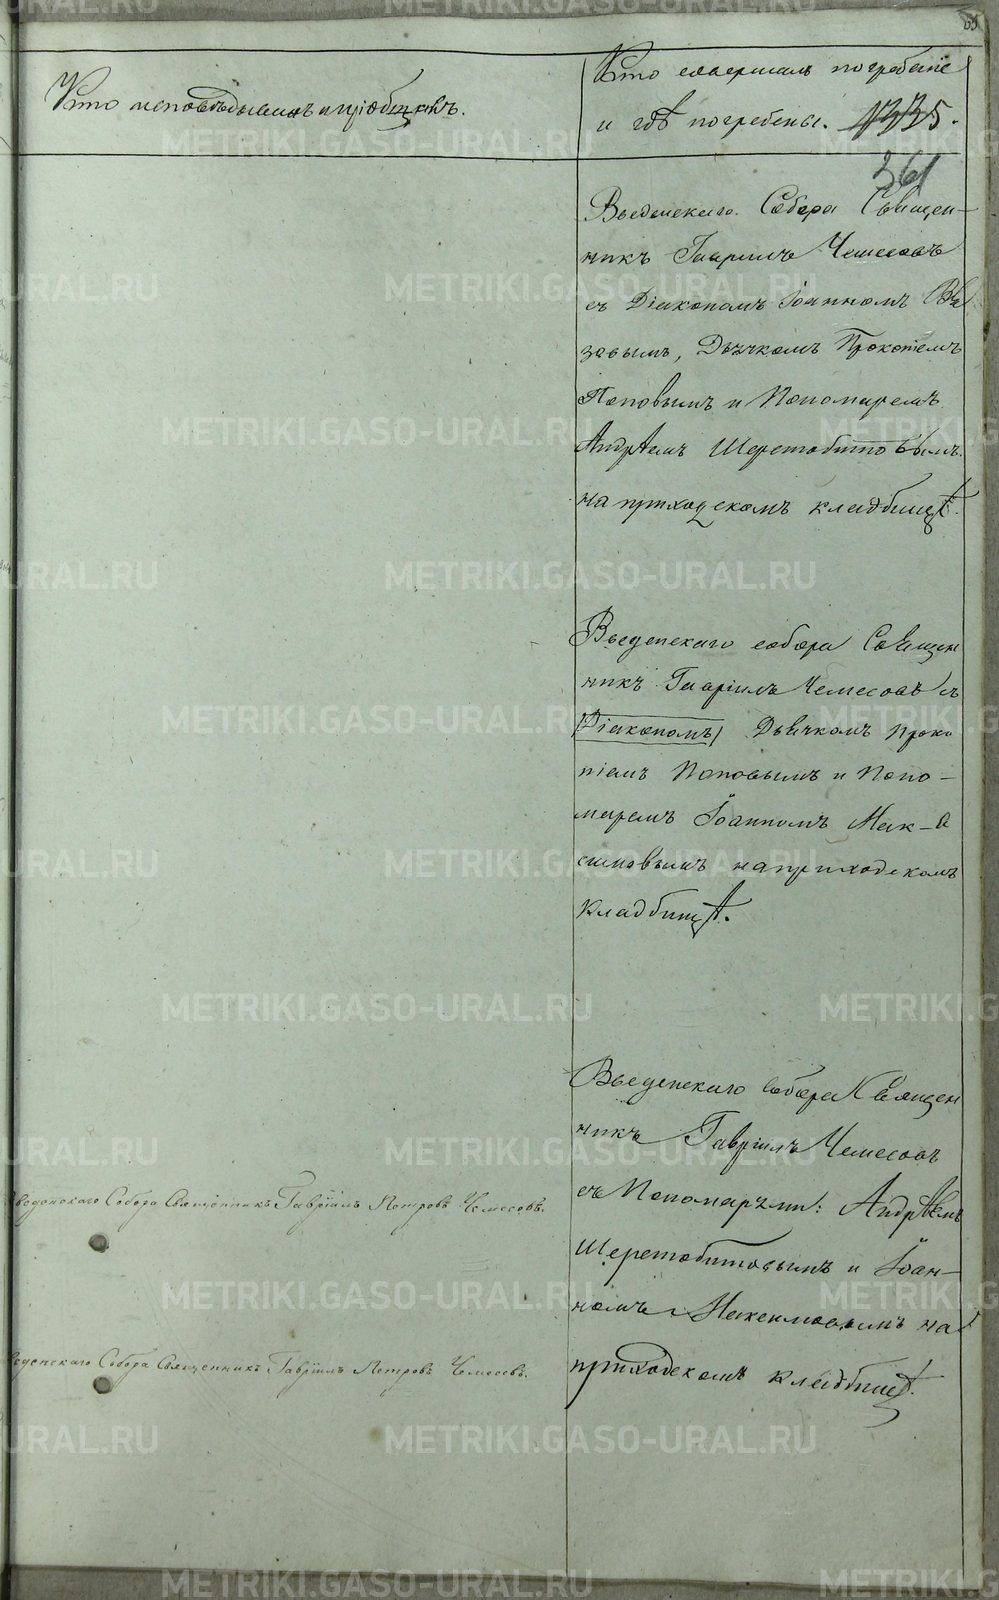 Кто исповѣдывалъ и пріобщалъ.
Кто совершалъ погребеніе
и гдѣ погребены. 1335.
361
Введенскаго Собора Священ-
никъ Гавріилъ Чемесовъ
съ Діакономъ Іоанномъ
зовымъ, Дьячкомъ Прокопіемъ
Поповымъ и Пономаремъ
Андрѣемъ Шеретобитовымъ
на приходскомъ кладбищѣ.
Введенскаго собора Священ
никъ Гавріилъ Чемесовъ съ
(Діакономъ) Дьячкомъ Проко
піемъ Поповымъ и Поно-
маремъ Іоанномъ Мак-
симовымъ на приходскомъ
кладбищѣ.
Введенскаго Собора Священ
никъ Гавріилъ Чемесовъ
съ Пономарями: Андрѣемъ
Шеретобитовымъ и Іоан-
номъ Максимовымъ на
приходскомъ кладбищѣ.
веденскаго Собора Священникъ Гавріилъ Петровъ Чемесовъ.
веденскаго Собора Священникъ Гавріилъ Петровъ Чемесовъ.
METRIKI.GASO-URAL.RU